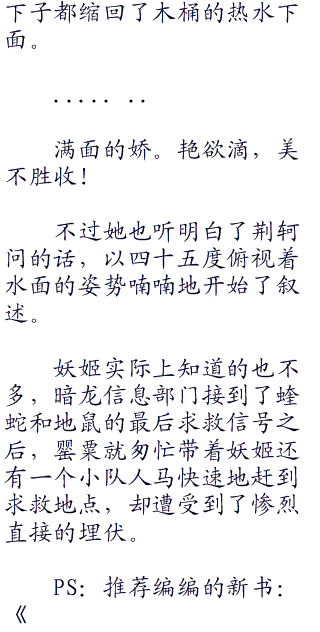 下子都缩回了木桶的热水下
面。
..... ..
满面的娇。艳欲滴，美
不胜收！
不过她也听明白了荆轲
问的话，以四十五度俯视着
水面的姿势喃喃地开始了叙
述。
妖姬实际上知道的也不
多，暗龙信息部门接到了蝰
蛇和地鼠的最后求救信号之
后，罂粟就匆忙带着妖姬还
有一个小队人马快速地赶到
求救地点，却遭受到了惨烈
直接的埋伏。
PS：推荐编编的新书：
《